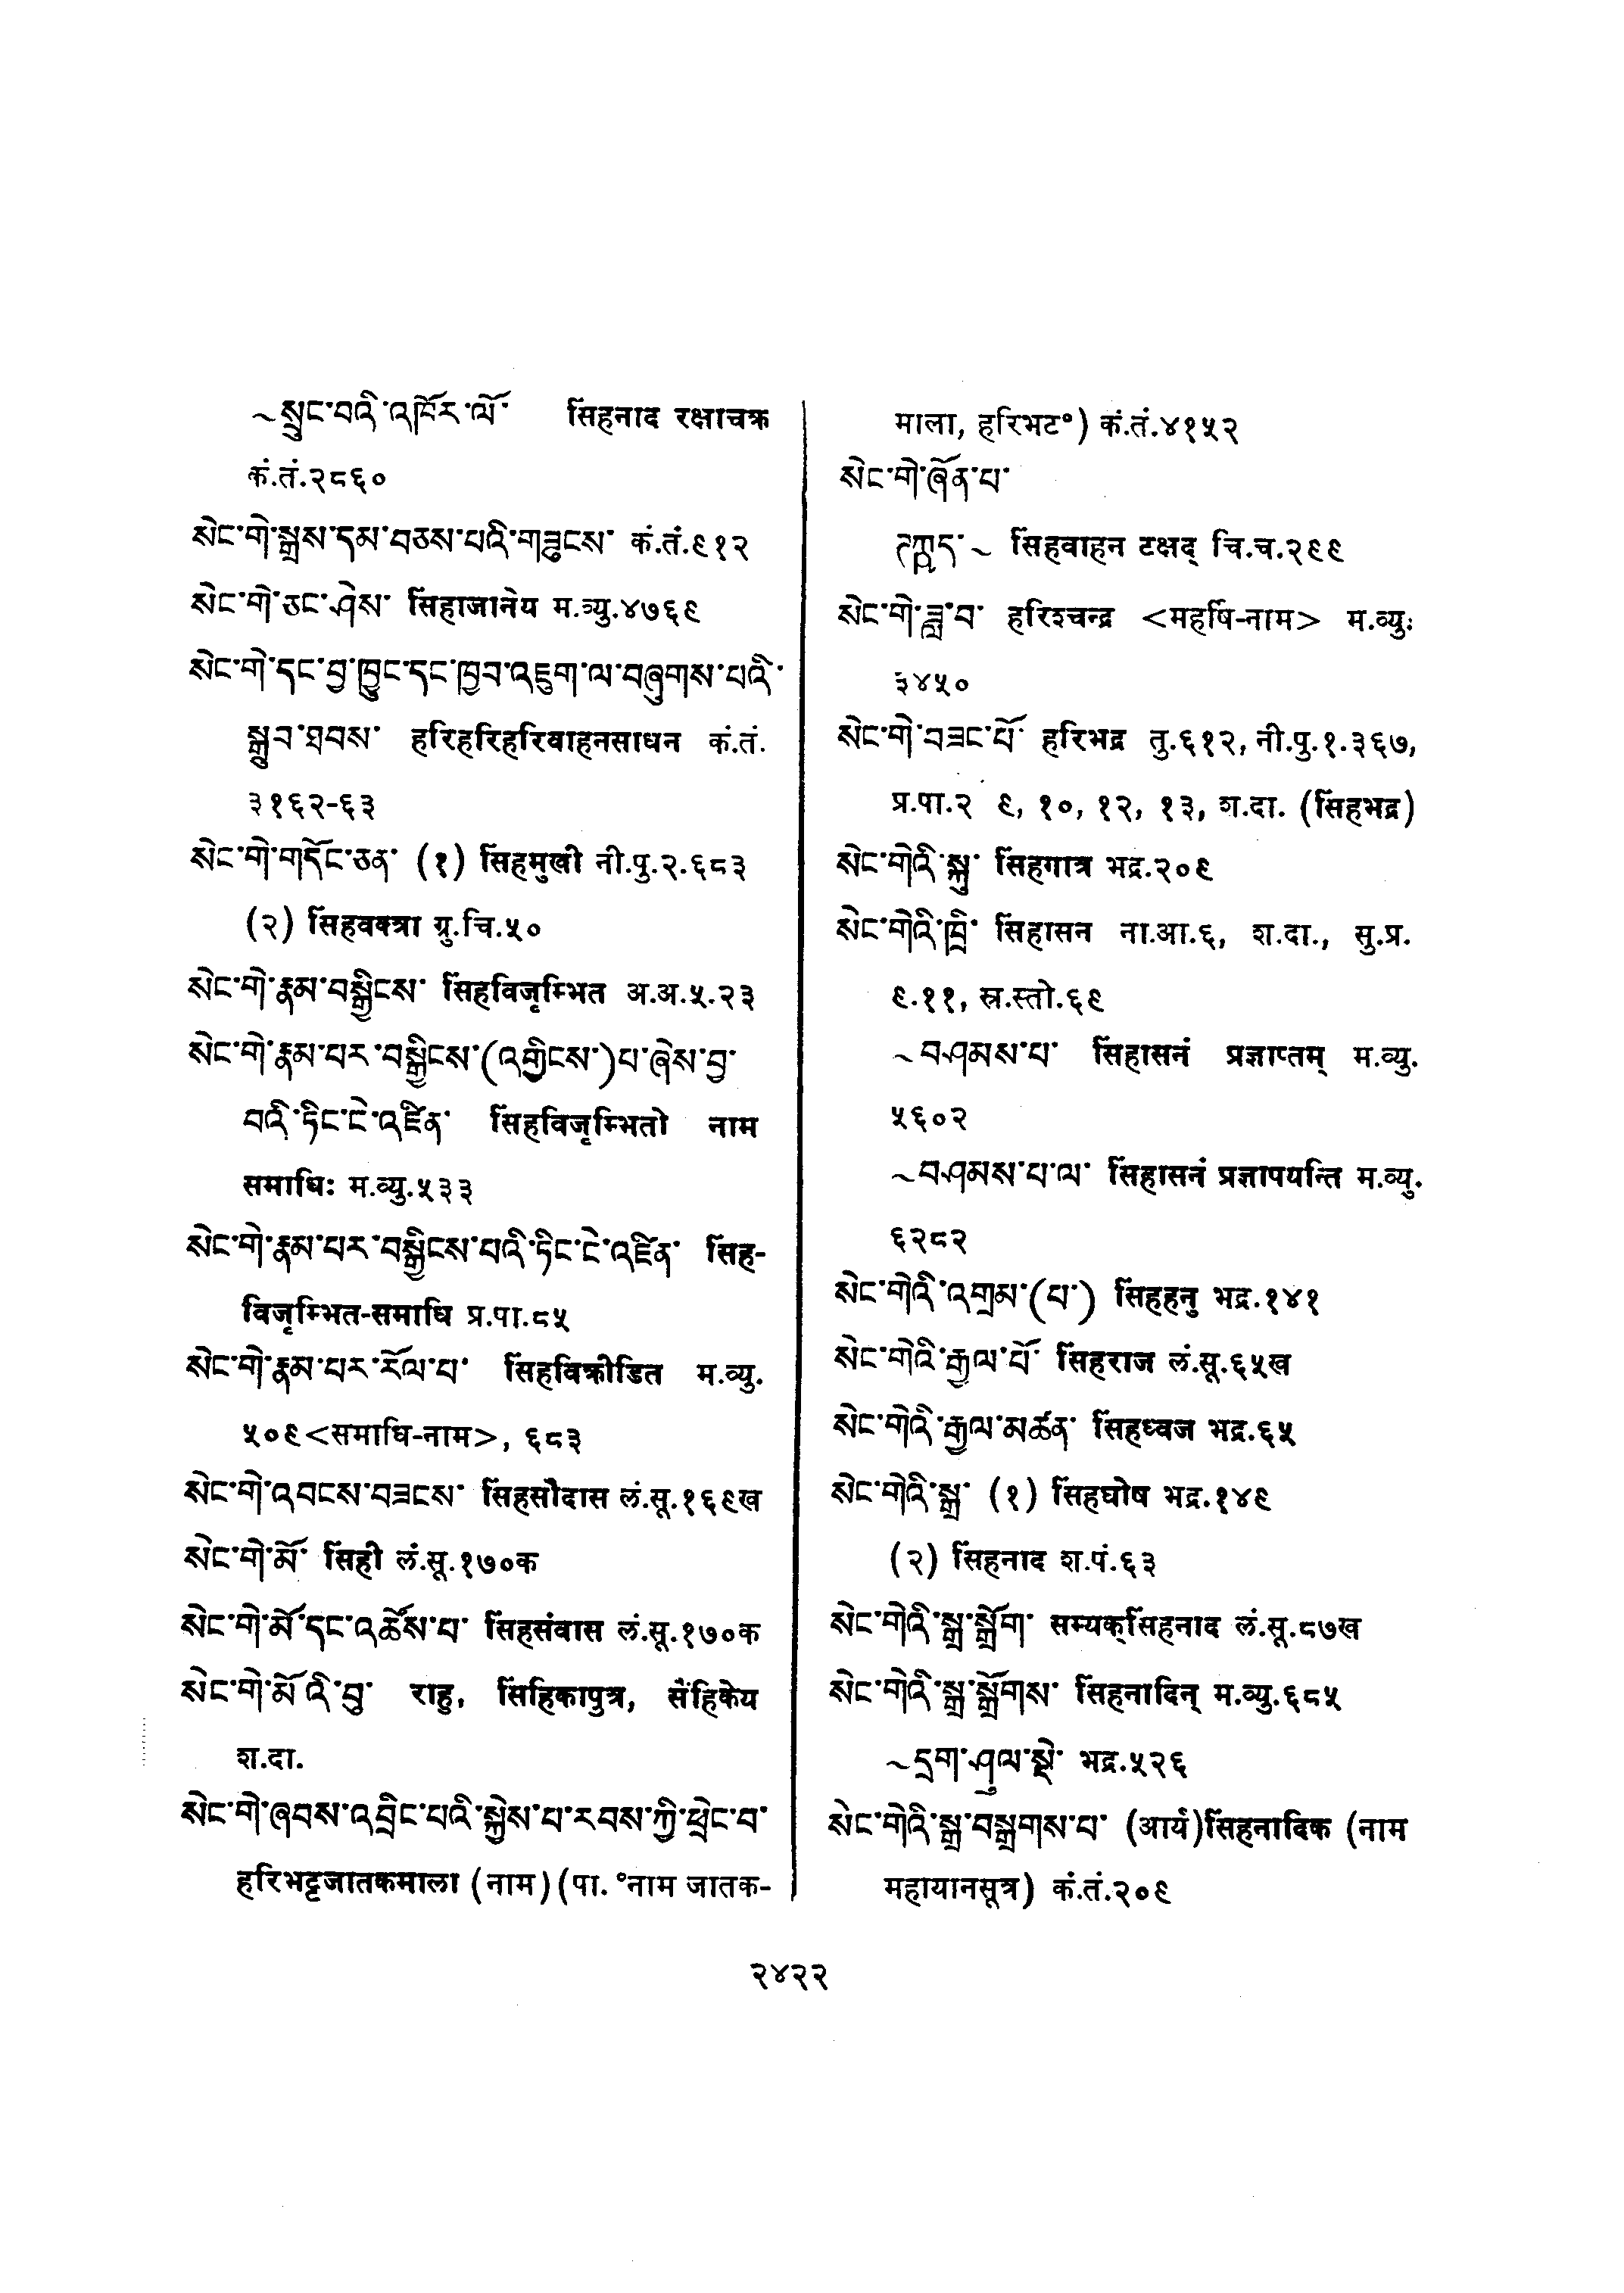 ~སྲུང་བའི་འཁོར་ལོ་ सिंहनाद रक्षाचक्र
कं.तं.२८६०
སེང་གེ་སྒྲས་དམ་བཅས་པའི་གཟུངས་ कं.तं.९१२
སེང་གེ་ཅང་ཤེས་ सिंहाजानेय म.व्यु.४७६९
སེང་གེ་དང་བྱ་ཁྱུང་དང་ཁྱབ་འཇུག་ལ་བཞུགས་པའི་
སྒྲུབ་ཐབས་ हरिहरिहरिवाहनसाधन कं.तं.
३१६२-६३
སེང་གེ་གདོང་ཅན་ (१) सिंहमुखी नी.पु.२.६८३
(२) सिंहवक्त्रा ग्रु.चि.५०
སེང་གེ་རྣམ་བསྒྱིངས་ सिंहविजृम्भित अ.अ.५.२३
སེང་གེ་རྣམ་པར་བསྒྱིངས་(འགྱིངས་)པ་ཞེས་བྱ་
བའི་ཏིང་ངེ་འཛིན་ सिंहविजृम्भितो नाम
समाधिः म.व्यु.५३३
སེང་གེ་རྣམ་པར་བསྒྱིངས་པའི་ཏིང་ངེ་འཛིན་ सिंह-
विजृम्भित-समाधि प्र.पा.८५
སེང་གེ་རྣམ་པར་རོལ་པ་ सिंहविक्रीडित म.व्यु.
५०९<समाधि-नाम>, ६८३
སེང་གེ་འབངས་བཟངས་ सिंहसौदास लं.सू.१६९ख
སེང་གེ་མོ་ सिंही लं.सू.१७०क
སེང་གེ་མོ་དང་འཚོས་པ་ सिंहसंवास लं.सू.१७०क
སེང་གེ་མོའི་བུ་ राहु, सिंहिकापुत्र, सैंहिकेय
श.दा.
སེང་གེ་ཞབས་འབྲིང་པའི་སྐྱེས་པ་རབས་ཀྱི་ཕྲེང་བ་
हरिभट्टजातकमाला (नाम) (पा. °नाम जातक-
माला, हरिभट°) कं.तं.४१५२
སེང་གེ་ཞོན་པ་
ཊཀྵད་~ सिंहवाहन टक्षद् चि.च.२९९
སེང་གེ་ཟླ་བ་ हरिश्चन्द्र <महर्षि-नाम> म.व्यु.
३४५०
སེང་གེ་བཟང་པོ་ हरिभद्र तु.६१२, नी.पु.१.३६७,
प्र.पा.२ ९, १०, १२, १३, श.दा. (सिंहभद्र)
སེང་གེའི་སྐུ་ सिंहगात्र भद्र.२०९
སེང་གེའི་ཁྲི་ सिंहासन ना.आ.६, श.दा., सु.प्र.
९.११, स्र.स्तो.६९
~བཤམས་པ་ सिंहासनं प्रज्ञाप्तम् म.व्यु.
५६०२
~བཤམས་པ་ལ་ सिंहासनं प्रज्ञापयन्ति म.व्यु.
६२८२
སེང་གེའི་འགྲམ་(པ་) सिंहहनु भद्र.१४१
སེང་གེའི་རྒྱལ་པོ་ सिंहराज लं.सू.६५ख
སེང་གེའི་རྒྱལ་མཚན་ सिंहध्वज भद्र.६५
སེང་གེའི་སྒྲ་ (१) सिंहघोष भद्र.१४९
(२) सिंहनाद श.पं.६३
སེང་གེའི་སྒྲ་སྒྲོག་ सम्यक्सिंहनाद लं.सू.८७ख
སེང་གེའི་སྒྲ་སྒྲོགས་ सिंहनादिन् म.व्यु.६८५
~དྲག་ཤུལ་སྡེ་ भद्र.५२६
སེང་གེའི་སྒྲ་བསྒྲགས་པ་ (आर्य)सिंहनादिक (नाम
महायानसूत्र) कं.तं.२०९
२४२२